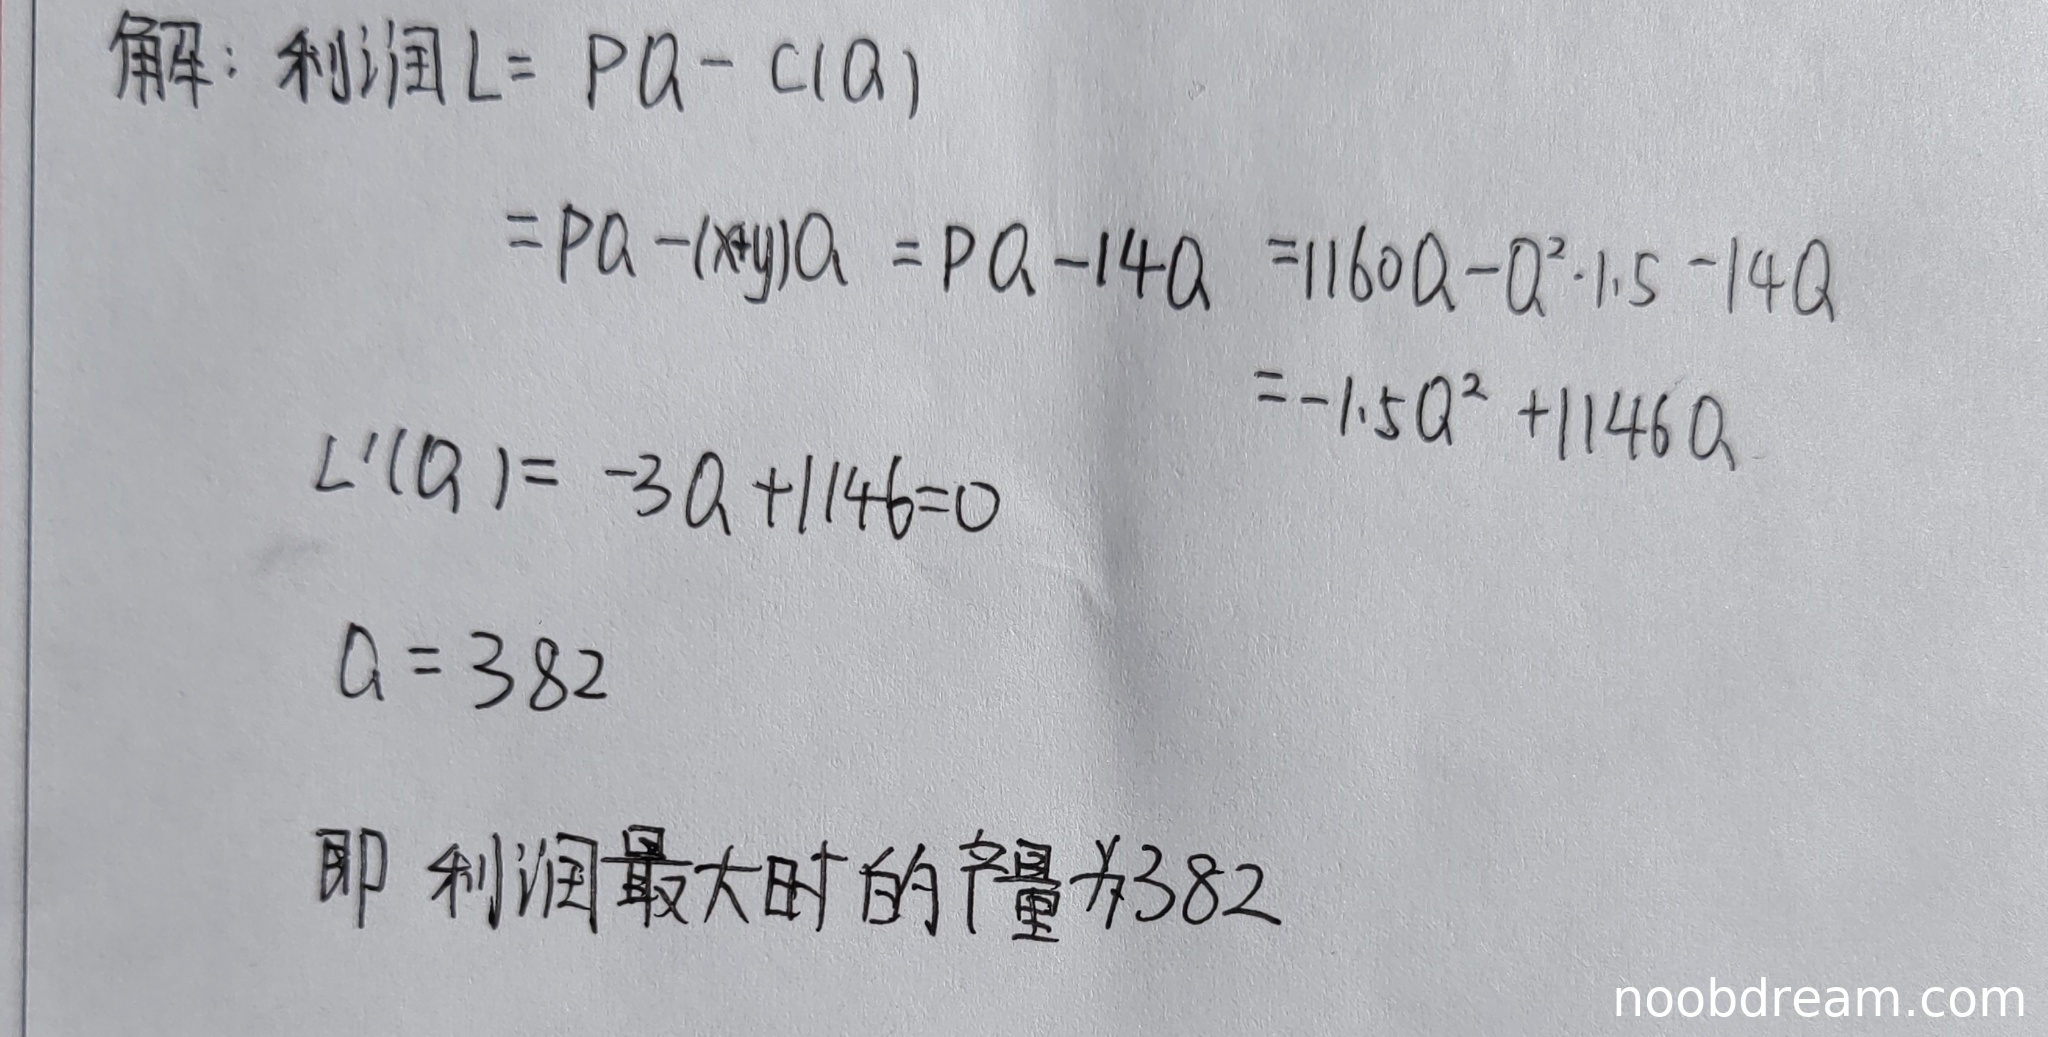 解：利润L = PQ - C(Q)
= PQ - (x+y)Q = PQ - 14Q = 1160Q - Q²·1.5 - 14Q
= -1.5Q² + 1146Q
L'(Q) = -3Q + 1146 = 0
Q = 382
即 利润最大时的产量为382
noobdream.com